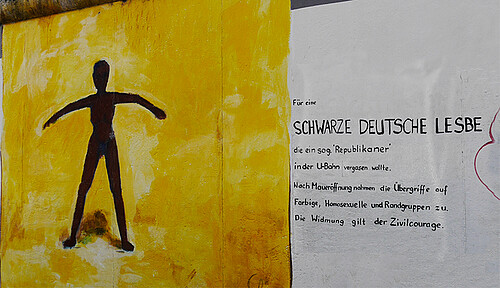 Für eine
SCHWARZE DEUTSCHE LESBE
die ein sog. 'Republikaner'
in der U-Bahn vergasen wollte.
Nach Maueröffnung nahmen die Übergriffe auf
Farbige, Homosexuelle und Randgruppen zu.
Die Widmung gilt der Zivilcourage.